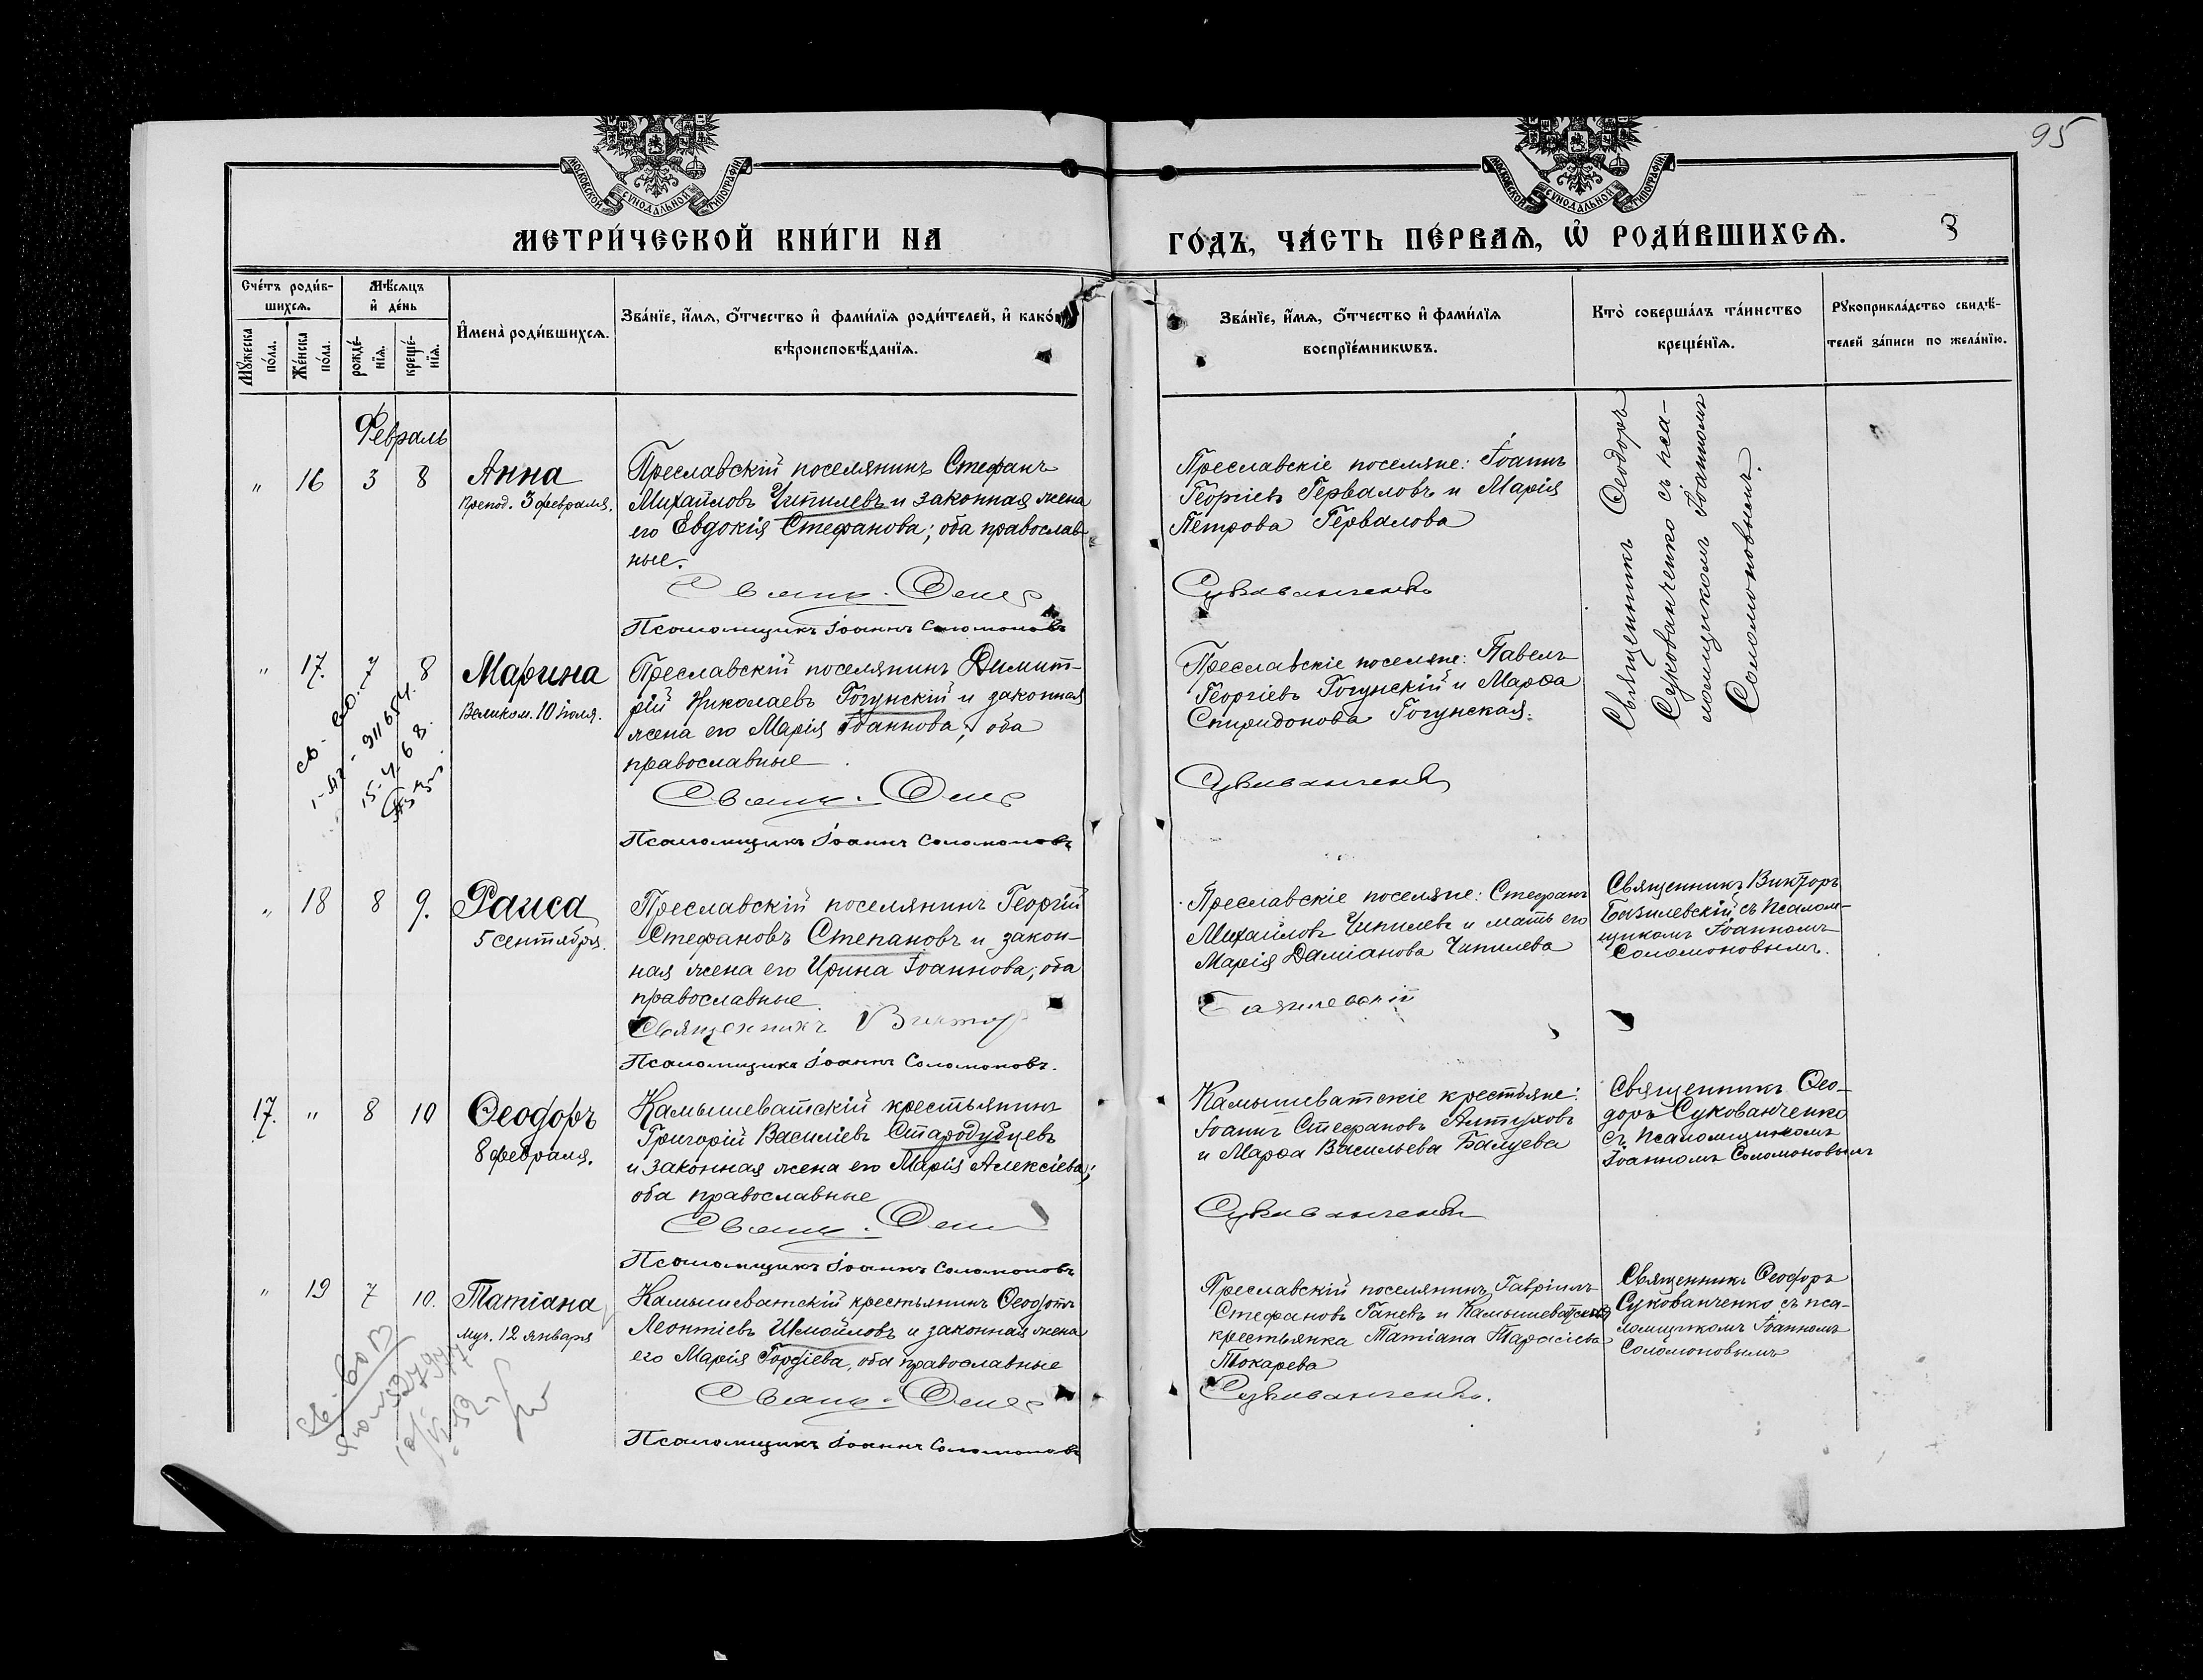 95
МОСКОВСКОЙ СѴНОДАЛЬНОЙ ТИПОГРАФІИ
МОСКОВСКОЙ СѴНОДАЛЬНОЙ ТИПОГРАФІИ
МЕТРИ́ЧЕСКОЙ КНИ́ГИ НА
ГО́ДЪ, ЧА́СТЬ ПЕ́РВАѦ, Ѡ҆ РОДИ́ВШИХСѦ.
3
Сче́тъ роди́в-
шихсѧ.
Мѣ́сѧцъ
и҆ де́нь
Мꙋ́жеска
по́ла.
Же́нска
по́ла.
рожде́-
нїѧ.
креще́-
нїѧ.
И҆мена̀ роди́вшихсѧ.
Зва́нїе, и҆́мѧ, ѻ҆́тчество и҆ фами́лїѧ роди́телей, и҆ како́
вѣроисповѣ́данїѧ.
Зва́нїе, и҆́мѧ, ѻ҆́тчество и҆ фами́лїѧ
воспрїе́мникѡвъ.
Кто̀ соверша́лъ та́инство
креще́нїѧ.
Рꙋкоприкла́дство свидѣ́-
телей за́писи по жела́нїю.
Февраль
" 16 3 8
Анна
Препод. 3 февраля.
Преславскій поселянинъ Стефанъ
Михайловъ Чипилевъ и законная жена
его Евдокія Стефанова; оба православ-
ные.
Псаломщикъ Іоаннъ Соломоновъ
Преславскіе поселяне: Іоаннъ
Георгіевъ Герваловъ и Марія
Петрова Гервалова
Сукованченко
Священникъ Ѳеодоръ
Сукованченко съ пса-
ломщикомъ Іоанномъ
Соломоновымъ.
" 17. 7 8
Марина
Великом. 10 іюля.
Преславскій поселянинъ Димит-
рій Николаевъ Гогунскій и законная
жена его Марія Іоаннова; оба
православные
Псаломщикъ Іоаннъ Соломоновъ
Преславскіе поселяне: Павелъ
Георгіевъ Гогунскій и Марѳа
Спиридонова Гогунская.
Сукованченко
" 18 8 9.
Раиса
5 сентября.
Преславскій поселянинъ Георгій
Стефановъ Степановъ и закон-
ная жена его Ирина Іоаннова; оба
православные
Священникъ Викторъ
Псаломщикъ Іоаннъ Соломоновъ.
Преславскіе поселяне: Стефанъ
Михайловъ Чипилевъ и мать его
Марія Даміанова Чипилева
Базилевскій
Священникъ Викторъ
Базилевскій съ псалом-
щикомъ Іоанномъ
Соломоновымъ.
17. " 8 10
Ѳеодоръ
8 февраля.
Камышеватскій крестьянинъ
Григорій Василіевъ Стародубцевъ
и законная жена его Марія Алексіева;
оба православные
Псаломщикъ Іоаннъ Соломоновъ
Камышеватскіе крестьяне:
Іоаннъ Стефановъ Алтуховъ
и Марѳа Васильева Балуева
Сукованченко
Священникъ Ѳео-
доръ Сукованченко
съ псаломщикомъ
Іоанномъ Соломоновымъ
" 19 7 10.
Татіана
Муч. 12 января
Камышеватскій крестьянинъ Ѳеодотъ
Леонтіевъ Измайловъ и законная жена
его Марія Гордіева, оба православные
Псаломщикъ Іоаннъ Соломоновъ
Преславскій поселянинъ Гавріилъ
Стефановъ Ганевъ и Камышеватская
крестьянка Татіана Тарасіева
Токарева
Сукованченко.
Священникъ Ѳеодоръ
Сукованченко съ пса-
ломщикомъ Іоанномъ
Соломоновымъ